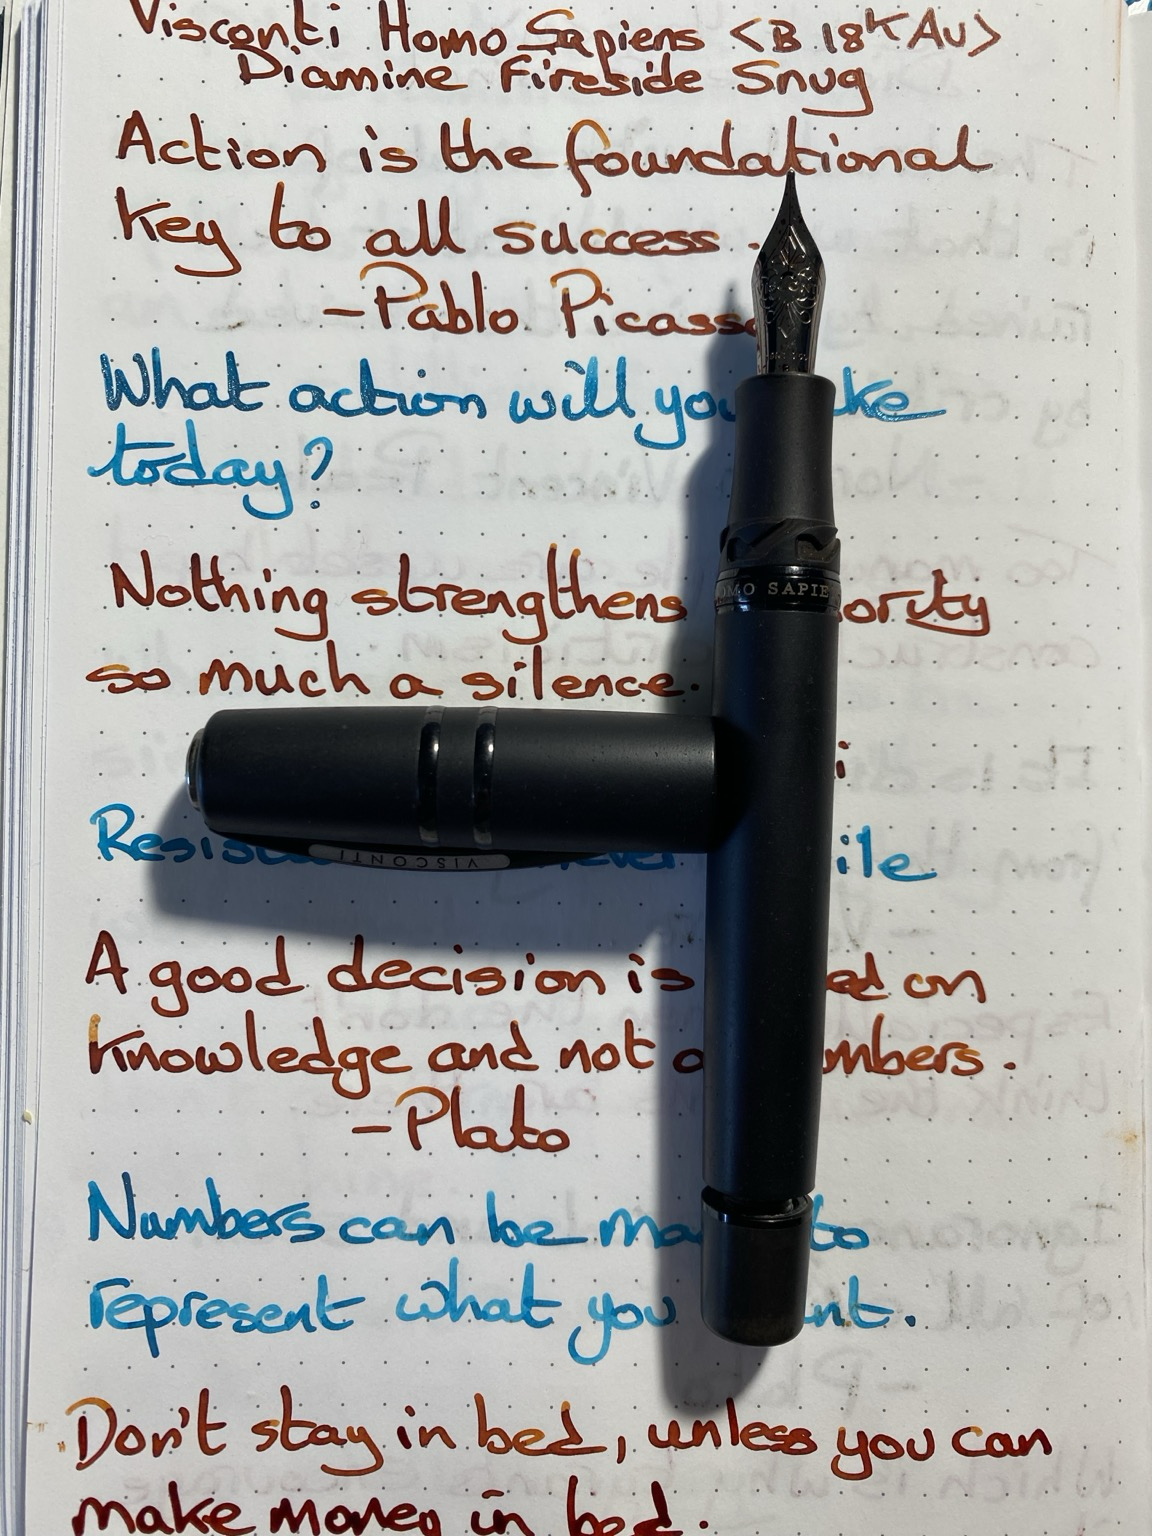 Visconti Homo Sapiens <B 18K Au>
Diamine Fireside Snug
Action is the foundational
key to all success.
-Pablo Picasso
What action will you
today?
Nothing strengthens
so much a silence.
HOMO SAPIENS
VISCONTI
A good decision is on
knowledge and not
-Plato
Numbers can be to
represent what you
Don't stay in bed, unless you can
make money in bed.